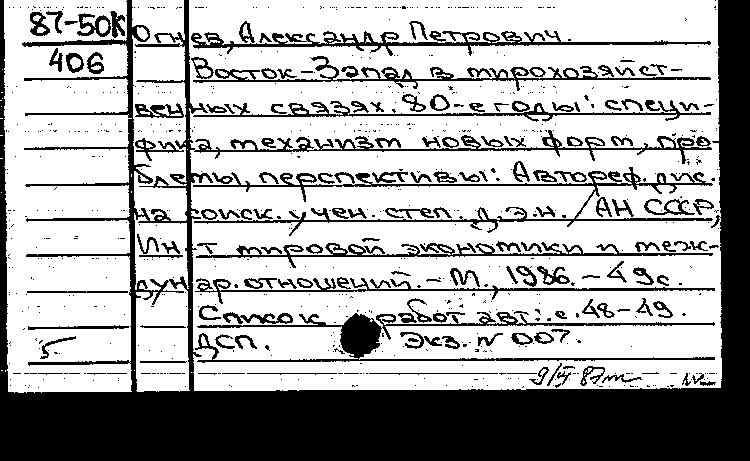 87-50К
406
Огнев, Александр Петрович.
Восток-Запад в мирохозяйст-
венных связях. 80-е годы: специ-
фика, механизм новых форм, про-
блемы, перспективы: Автореф. дис.
на соиск. учен. степ. д.э.н. / АН СССР,
Ин-т мировой экономики и меж-
дунар. отношений. - М., 1986. - 49с.
Список работ авт.: с. 48-49.
ДСП. Экз. N 007.
5.